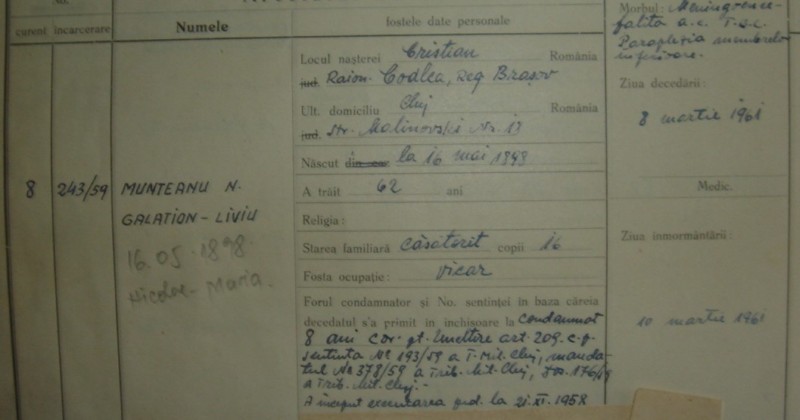 No.
curent
incarcerare
Numele
fostele date personale
Morbul: Meningoence-
falita a.c. T.B.C.
Paraplegia membrelor
inferioare.
Locul nașterei Cristian România
jud. Raion. Codlea, Reg Brașov
Ziua decedării:
8 martie 1961
Ult. domiciliu Cluj România
jud. Str. Malinovski Nr. 13
Născut din la 16 mai 1898
8 243/59 MUNTEANU N.
GALATION-LIVIU
16.05.1898.
Nicolae-Maria.
A trăit 62 ani
Medic.
Religia:
Starea familiară căsătorit copii 16
Ziua inmormântării:
10 martie 1961
Fosta ocupație: vicar
Forul condamnator și No. sentinței in baza căreia
decedatul s'a primit in inchisoare la Condamnat
8 ani cor. pt. Uneltire art. 209. c.p.
sentinta Nr 193/59 a T. Mil. Cluj, manda-
tul Nr 378/59 a Trib. Mil. Cluj,
a Trib. Mil. Cluj.-
A inceput executarea ped. la 21.XI.1958